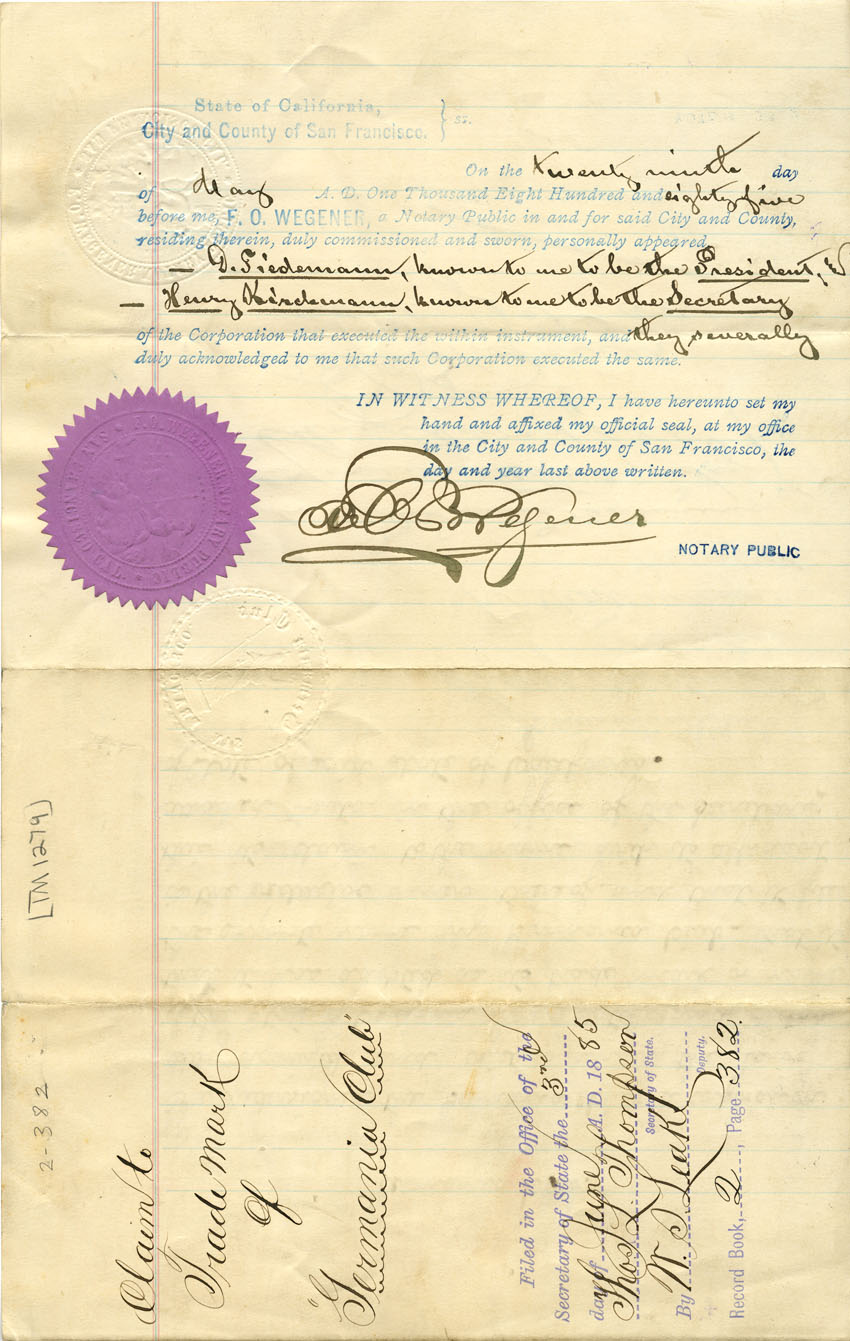 State of California,
City and County of San Francisco. } ss.
On the twenty ninth day
of May A. D. One Thousand Eight Hundred and eighty five
before me, F. O. WEGENER, a Notary Public in and for said City and County,
residing therein, duly commissioned and sworn, personally appeared
— D. Tiedemann, known to me to be the President, &
— Henry Kindemann, known to me to be the Secretary
of the Corporation that executed the within instrument, and they severally
duly acknowledged to me that such Corporation executed the same.
IN WITNESS WHEREOF, I have hereunto set my
hand and affixed my official seal, at my office
in the City and County of San Francisco, the
day and year last above written.
F O Wegener
NOTARY PUBLIC
[TM 1279]
2-382
Claim to
Trade mark
of
"Germania Club"
Filed in the Office of the
Secretary of State the 3rd
day of June A. D. 1885
Thos L Thompson
Secretary of State.
By W. S. Leake
Deputy.
Record Book, 2, Page 382.